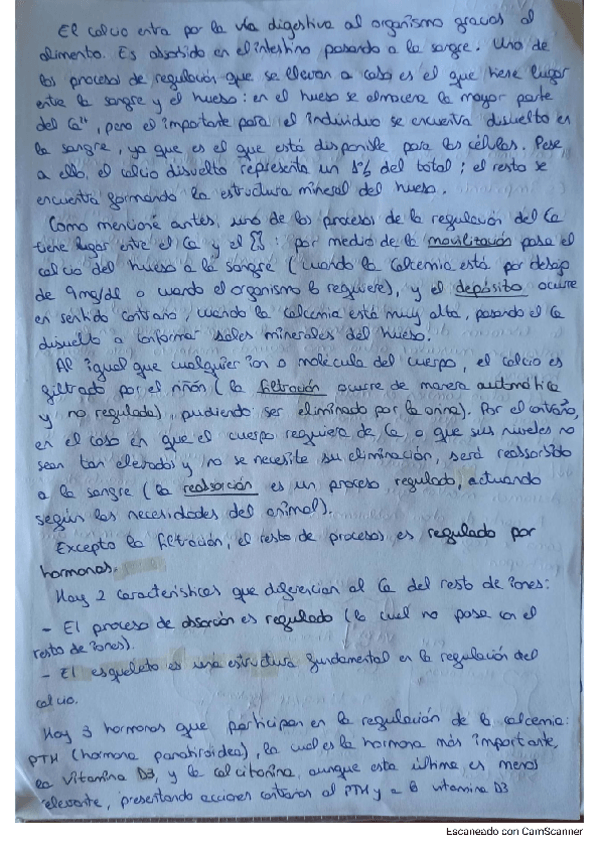 El calcio entra por la vía digestiva al organismo gracias al
alimento. Es absorbido en el intestino pasando a la sangre. Uno de
los procesos de regulación que se llevan a cabo es el que tiene lugar
entre la sangre y el hueso: en el hueso se almacena la mayor parte
del Ca²⁺, pero el importante para el individuo se encuentra disuelto en
la sangre, ya que es el que está disponible para las células. Pese
a ello, el calcio disuelto representa un 1% del total; el resto se
encuentra formando la estructura mineral del hueso.
Como mencioné antes, uno de los procesos de la regulación del Ca
tiene lugar entre el Ca y el : por medio de la movilización pasa el
calcio del hueso a la sangre (cuando la calcemia está por debajo
de 9mg/dl o cuando el organismo lo requiere), y el depósito ocurre
en sentido contrario, cuando la calcemia está muy alta, pasando el Ca
disuelto a conformar sales minerales del hueso.
Al igual que cualquier ion o molécula del cuerpo, el calcio es
filtrado por el riñón (la filtración ocurre de manera automática
y no regulada), pudiendo ser eliminado por la orina). Por el contrario,
en el caso en que el cuerpo requiera de Ca o que sus niveles no
sean tan elevados y no se necesite su eliminación, será reabsorbido
a la sangre (la reabsorción es un proceso regulado, actuando
según las necesidades del animal).
Excepto la filtración, el resto de procesos es regulado por
hormonas.
Hay 2 características que diferencian al Ca del resto de iones:
- El proceso de absorción es regulado (lo cual no pasa en el
resto de iones).
- El esqueleto es una estructura fundamental en la regulación del
calcio.
Hay 3 hormonas que participan en la regulación de la calcemia:
PTH (hormona paratiroidea), la cual es la hormona más importante,
la vitamina D3, y la calcitonina, aunque esta última es menos
relevante, presentando acciones contrarias al PTH y a la vitamina D3
Escaneado con CamScanner